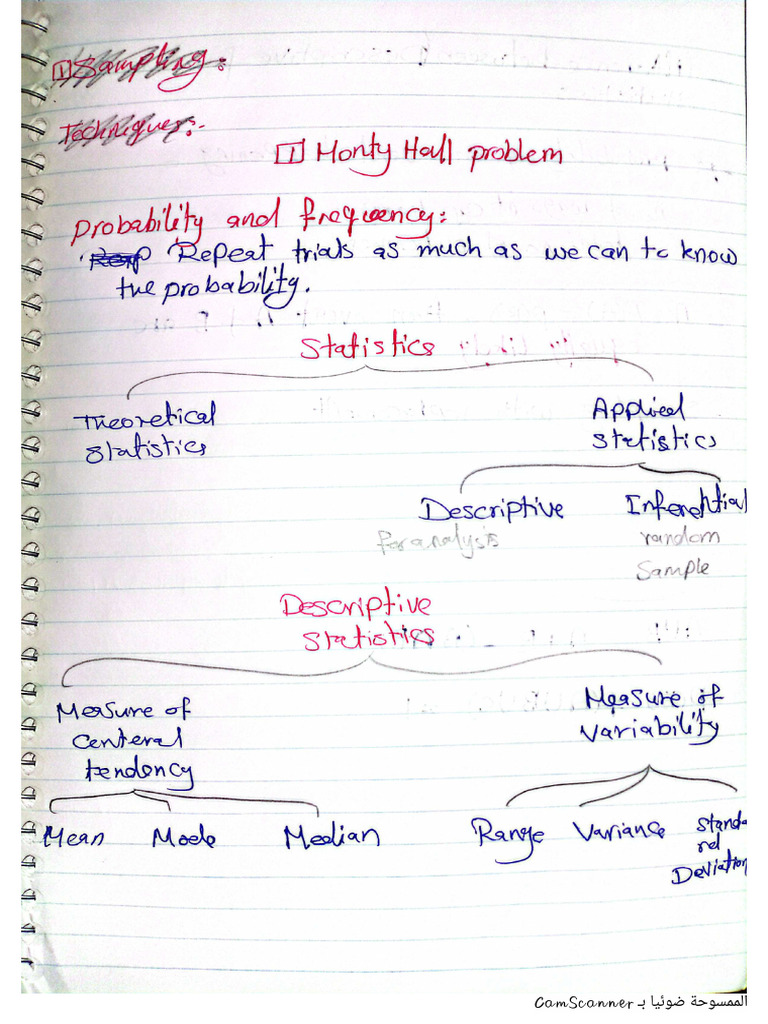 1 Sampling:
Techniques:-
1 Monty Hall problem
Probability and frequency:
Repeat trials as much as we can to know
the probability.
Statistics
Theoretical Applied
Statistics Statistics
Descriptive Inferential
for analysis random
Sample
Descriptive
Statistics
Measure of Measure of
Centeral Variability
tendency
Mean Mode Median Range Variance Standa
rd
Deviation
الممسوحة ضوئيا بـ CamScanner